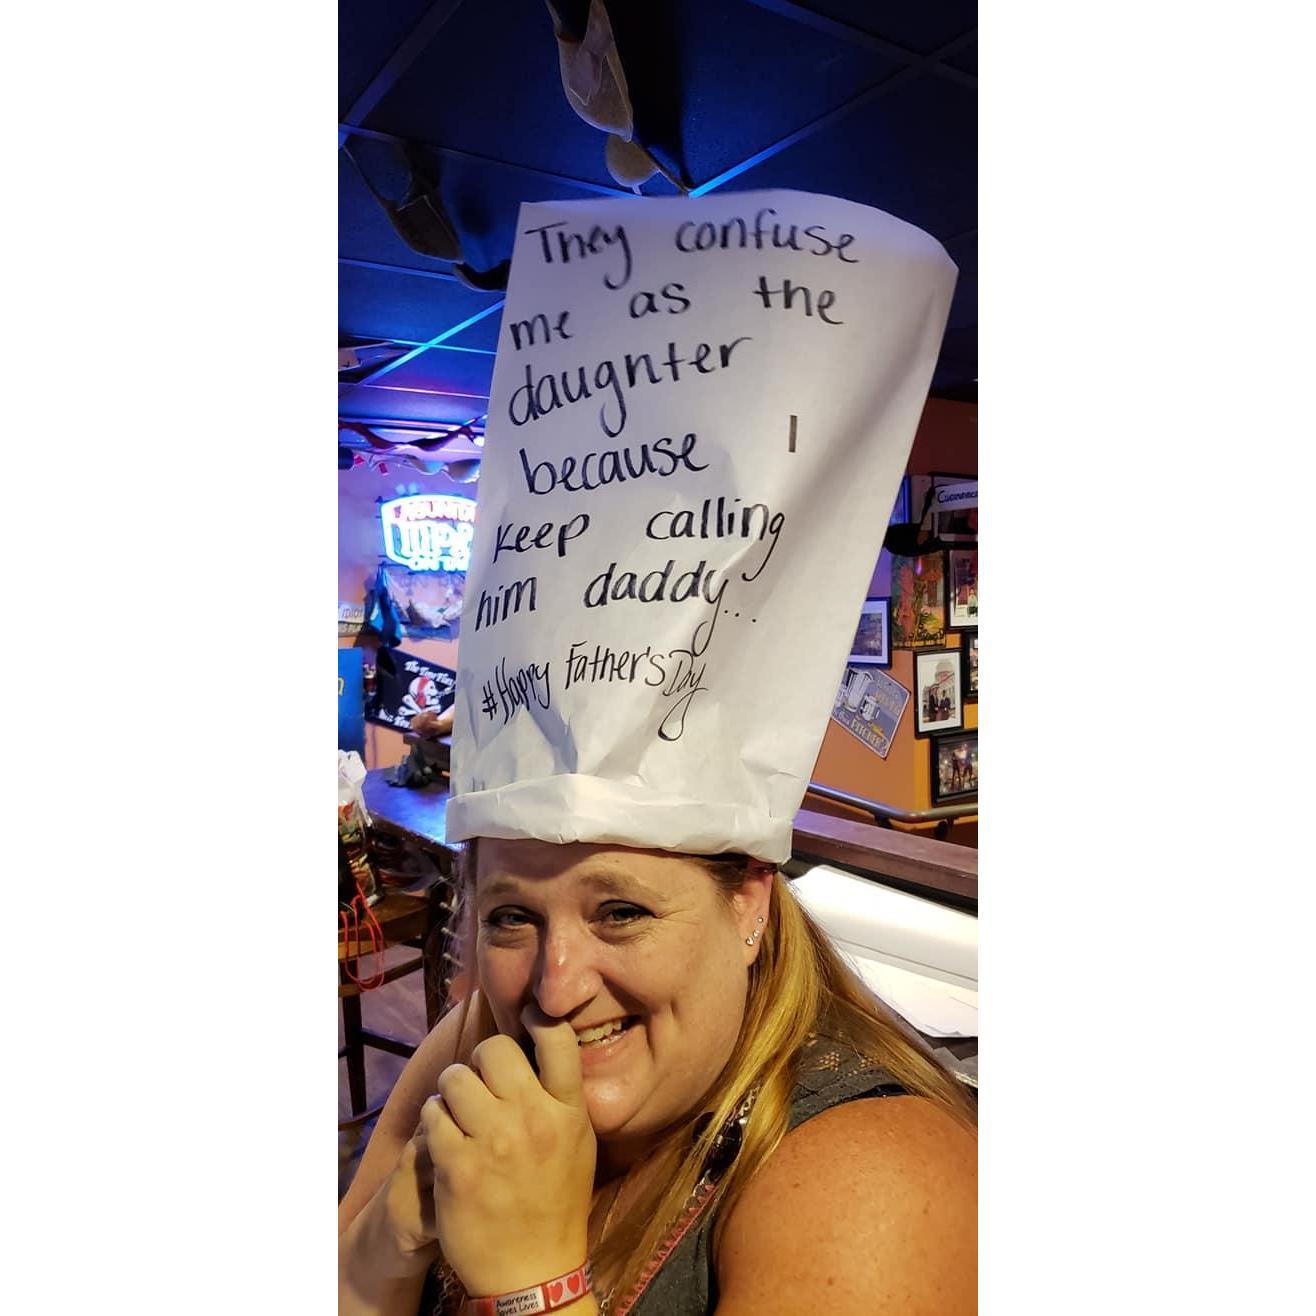 They confuse
me as the
daughter
because I
keep calling
him daddy...
#Happy Father's Day
ON TAP
PITCHER
Awareness
Saves Lives